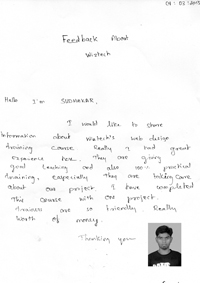 Feedback About
Wiztech
Hello I'm SUDHAKAR,
I would like to share
Information about Wiztech's web design
training course. Really I had great
experience here. They are giving
good teaching and also practical
training, especially they are taking care
about our project. I have completed
this course with one project.
Trainers are so friendly. Really
worth of money.
Thanking you